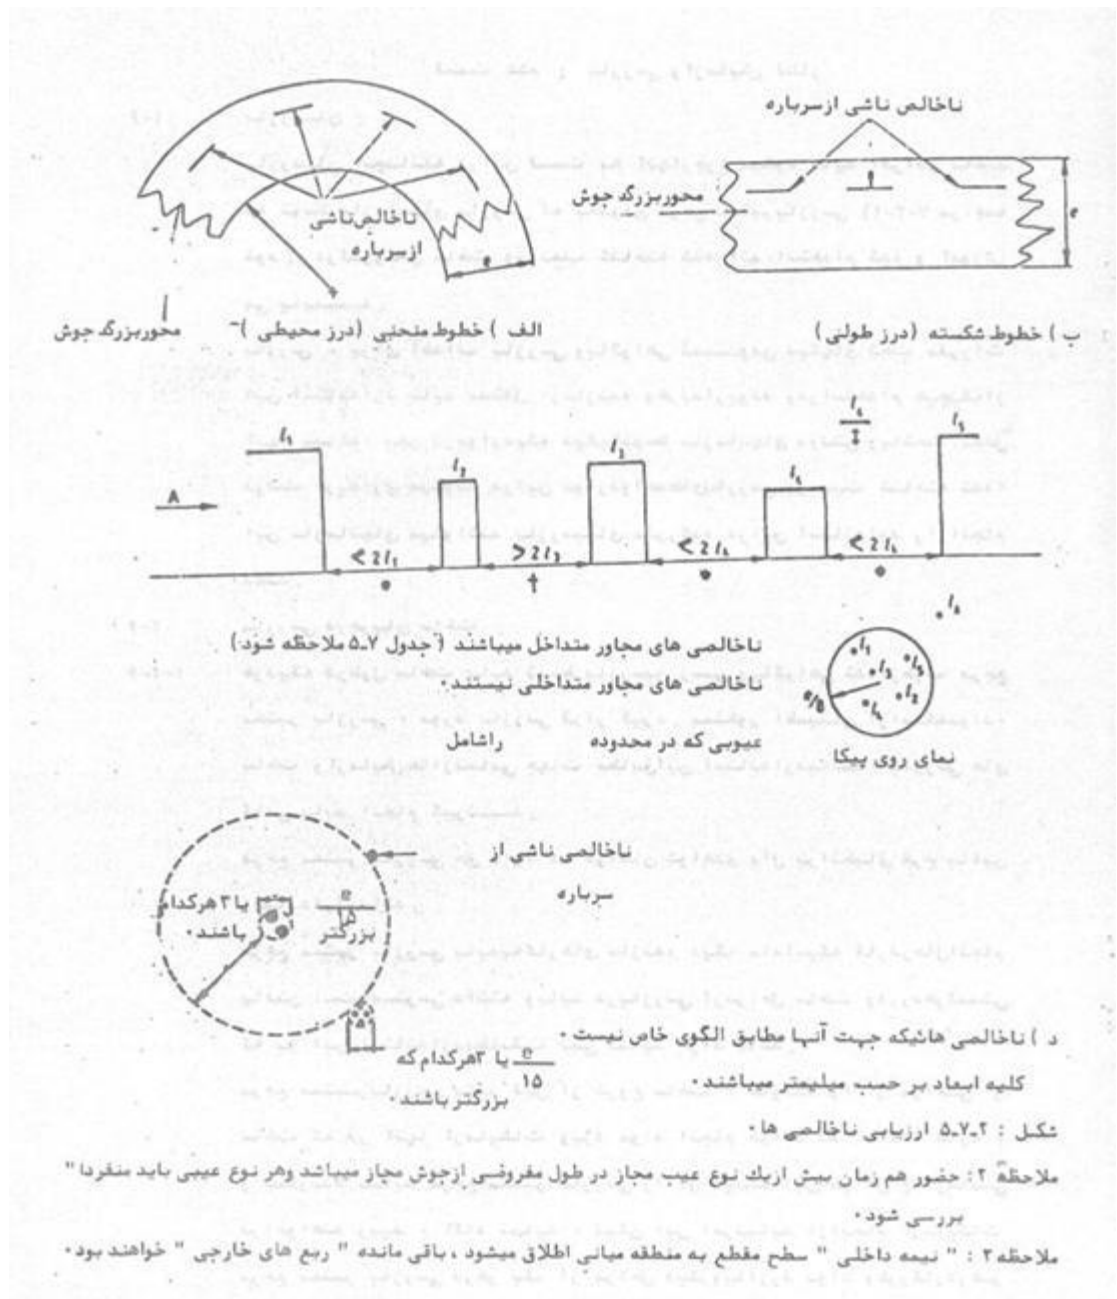 ناخالص ناشی ازسرباره
محوربزرگ جوش
e
ناخالص ناشی
ازسرباره
e
محوربزرگ جوش
الف ) خطوط منحنی (درز محیطی )
ب ) خطوط شکسته (درز طولی )
A
l₁
l₂
l₃
l₄
l₅
l₆
< 2l₁
> 2l₃
< 2l₄
< 2l₄
ناخالصی های مجاور متداخل میباشند ( جدول ۷ـ۵ ملاحظه شود)
ناخالصی های مجاور متداخلی نیستند۰
عیوبی که در محدوده راشامل
l₆
l₁
l₅
l₃
l₂
l₄
e/8
نمای روی پیکا
ناخالصی ناشی از
سرباره
e/۱۵ یا ۳هرکدام
بزرگتر باشند۰
e/۱۵ یا ۳هرکدام که
بزرگتر باشند۰
د ) ناخالصی هائیکه جهت آنها مطابق الگوی خاص نیست۰
کلیه ابعاد بر حسب میلیمتر میباشند۰
شکل : ۲ـ۷ـ۵ ارزیابی ناخالصی ها۰
ملاحظه ۲: حضور هم زمان بیش ازیك نوع عیب مجاز در طول مفروضی ازجوش مجاز میباشد وهر نوع عیبی باید منفردا"
بررسی شود۰
ملاحظه۳ : " نیمه داخلی " سطح مقطع به منطقه میانی اطلاق میشود ، باقی مانده " ربع های خارجی " خواهند بود۰